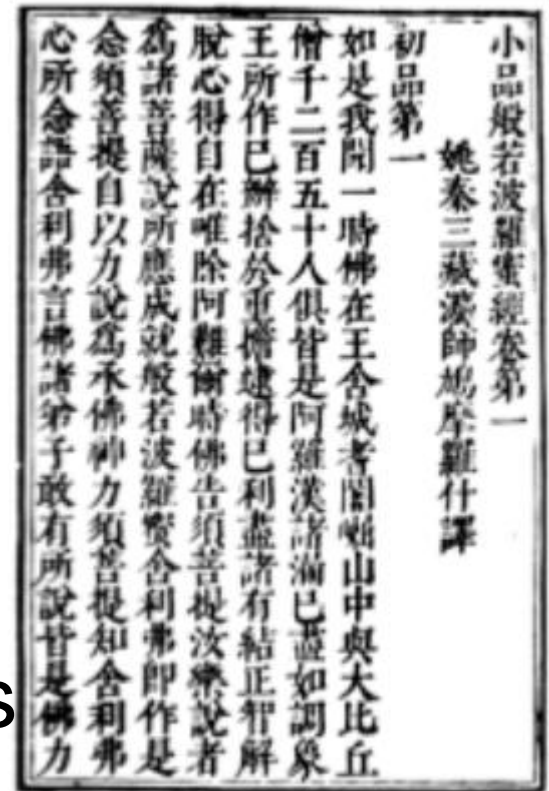 小品般若波羅蜜經卷第一
姚秦三藏法師鳩摩羅什譯
初品第一
如是我聞一時佛在王舍城耆闍崛山中與大比丘
僧千二百五十人俱皆是阿羅漢諸漏已盡如調象
王所作已辦捨於重擔逮得已利盡諸有結正智解
脫心得自在唯除阿難爾時佛告須菩提汝樂說者
為諸菩薩說所應成就般若波羅蜜舍利弗即作是
念須菩提自以力說為承佛神力須菩提知舍利弗
心所念語舍利弗言佛諸弟子敢有所說皆是佛力
s